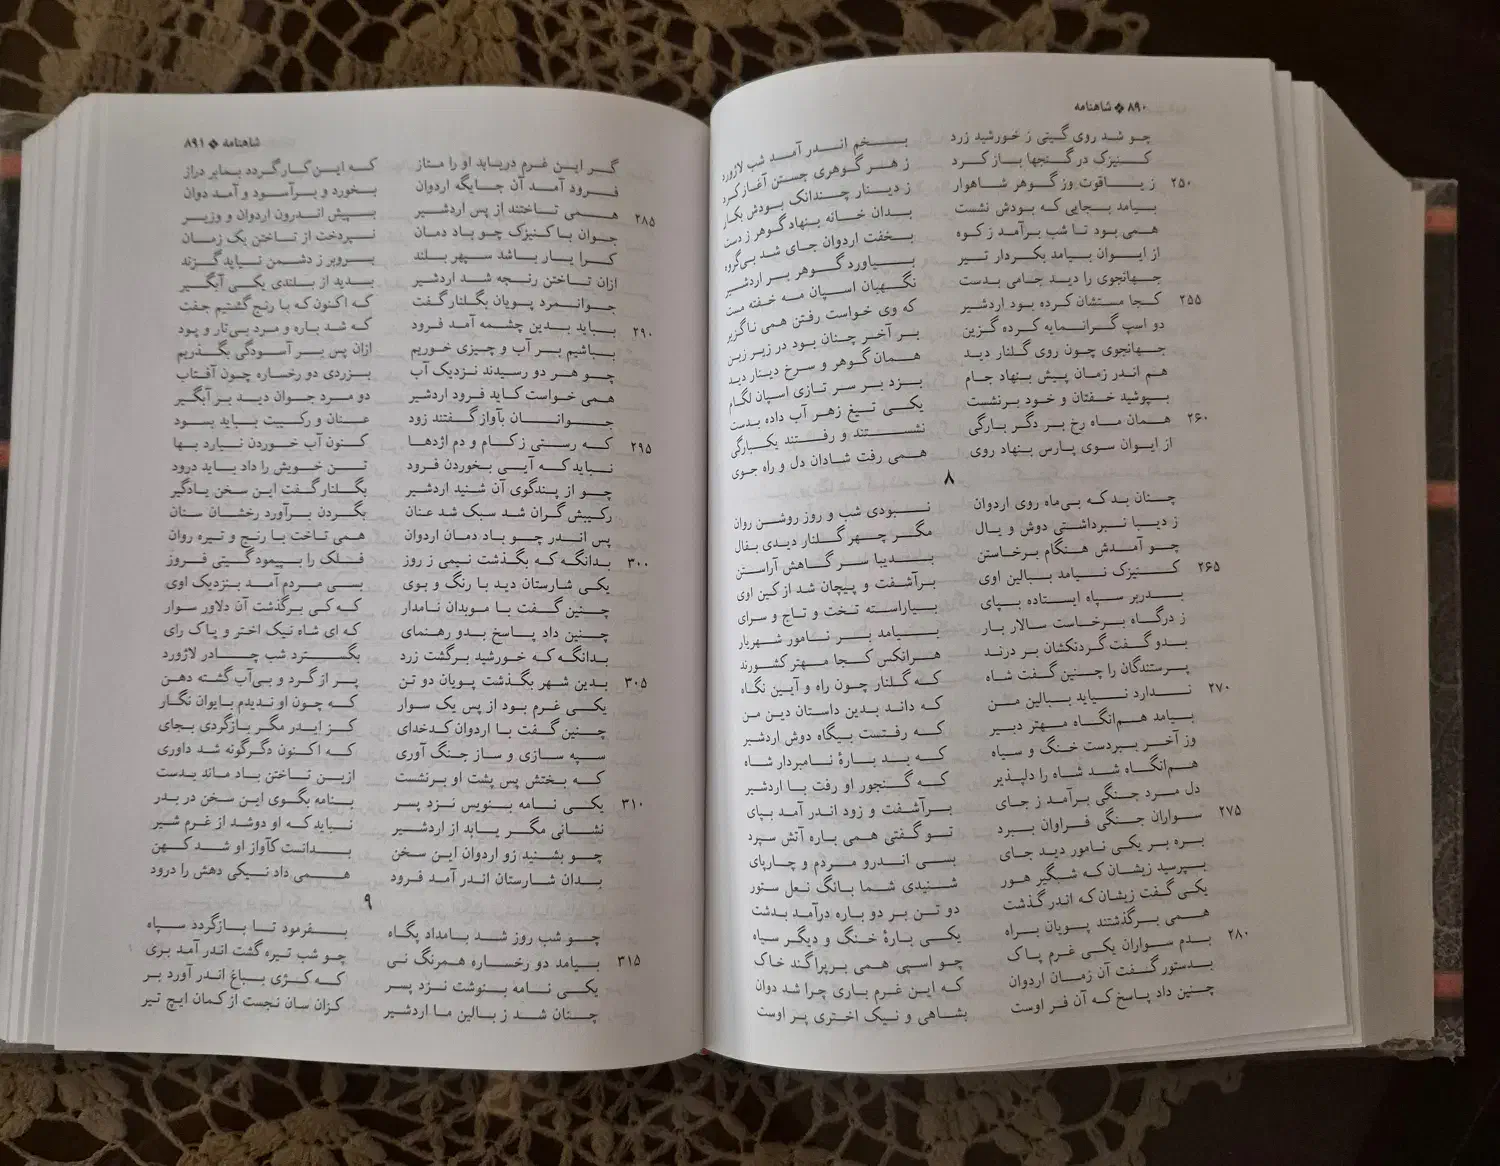 ۸۹۰ ❖ شاهنامه
چو شد روی گیتی ز خورشید زرد بخم اندر آمد شب لاژورد
کنیزک در گنجها باز کرد ز هر گوهری جستن آغاز کرد
۲۵۰ ز یاقوت وز گوهر شاهوار ز دینار چندانک بودش بکار
بیامد بجایی که بودش نشست بدان خانه بنهاد گوهر ز دست
همی بود تا شب برآمد ز کوه بخفت اردوان جای شد بی‌گروه
از ایوان بیامد بکردار تیر بیاورد گوهر بر اردشیر
جهانجوی را دید جامی بدست نگهبان اسپان مه خفته مست
۲۵۵ کجا مستشان کرده بود اردشیر که وی خواست رفتن همی ناگزیر
دو اسپ گرانمایه کرده گزین بر آخر چنان بود در زیر زین
جهانجوی چون روی گلنار دید همان گوهر و سرخ دینار دید
هم اندر زمان پیش بنهاد جام بزد بر سر تازی اسپان لگام
بپوشید خفتان و خود برنشست یکی تیغ زهر آب داده بدست
۲۶۰ همان ماه رخ بر دگر بارگی نشستند و رفتند یکبارگی
از ایوان سوی پارس بنهاد روی همی رفت شادان دل و راه جوی
۸
چنان بد که بی‌ماه روی اردوان نبودی شب و روز روشن روان
ز دیبا نبرداشتی دوش و یال مگر چهر گلنار دیدی بفال
چو آمدش هنگام برخاستن بدیبا سر گاهش آراستن
۲۶۵ کنیزک نیامد ببالین اوی برآشفت و پیچان شد از کین اوی
بدربر سپاه ایستاده بپای بیاراسته تخت و تاج و سرای
ز درگاه برخاست سالار بار بیامد بر نامور شهریار
بدو گفت گردنکشان بر درند هرانکس کجا مهتر کشورند
پرستندگان را چنین گفت شاه که گلنار چون راه و آیین نگاه
۲۷۰ ندارد نیاید ببالین من که داند بدین داستان دین من
بیامد هم‌انگاه مهتر دبیر که رفتست بیگاه دوش اردشیر
وز آخر ببردست خنگ و سیاه که بد بارهٔ نامبردار شاه
هم‌انگاه شد شاه را دلپذیر که گنجور او رفت با اردشیر
دل مرد جنگی برآمد ز جای برآشفت و زود اندر آمد بپای
۲۷۵ سواران جنگی فراوان ببرد تو گفتی همی باره آتش سپرد
بره بر یکی نامور دید جای بسی اندرو مردم و چارپای
بپرسید زیشان که شبگیر هور شنیدی شما بانگ نعل ستور
یکی گفت زیشان که اندر گذشت دو تن بر دو باره درآمد بدشت
همی برگذشتند پویان براه یکی بارهٔ خنگ و دیگر سیاه
۲۸۰ بدم سواران یکی غرم پاک چو اسپی همی برپراگند خاک
بدستور گفت آن زمان اردوان که این غرم باری چرا شد دوان
چنین داد پاسخ که آن فر اوست بشاهی و نیک اختری پر اوست
شاهنامه ❖ ۸۹۱
گر این غرم دریابد او را متاز که این کار گردد بمابر دراز
فرود آمد آن جایگه اردوان بخورد و برآسود و آمد دوان
۲۸۵ همی تاختند از پس اردشیر بپیش اندرون اردوان و وزیر
جوان با کنیزک چو باد دمان نپردخت از تاختن یک زمان
کرا یار باشد سپهر بلند بروبر ز دشمن نیاید گزند
ازان تاختن رنجه شد اردشیر بدید از بلندی یکی آبگیر
جوانمرد پویان بگلنار گفت که اکنون که با رنج گشتیم جفت
۲۹۰ بباید بدین چشمه آمد فرود که شد باره و مرد بی‌تار و پود
بباشیم بر آب و چیزی خوریم ازان پس بر آسودگی بگذریم
چو هر دو رسیدند نزدیک آب بزردی دو رخساره چون آفتاب
همی خواست کاید فرود اردشیر دو مرد جوان دید بر آبگیر
جوانان بآواز گفتند زود عنان و رکیبت بباید بسود
۲۹۵ که رستی ز کام و دم اژدها کنون آب خوردن نیارد بها
نباید که آیی بخوردن فرود تن خویش را داد باید درود
چو از پندگوی آن شنید اردشیر بگلنار گفت این سخن یادگیر
رکیبش گران شد سبک شد عنان بگردن برآورد رخشان سنان
پس اندر چو باد دمان اردوان همی تاخت با رنج و تیره روان
۳۰۰ بدانگه که بگذشت نیمی ز روز فلک را بپیمود گیتی فروز
یکی شارستان دید با رنگ و بوی بسی مردم آمد بنزدیک اوی
چنین گفت با موبدان نامدار که کی برگذشت آن دلاور سوار
چنین داد پاسخ بدو رهنمای که ای شاه نیک اختر و پاک رای
بدانگه که خورشید برگشت زرد بگسترد شب چادر لاژورد
۳۰۵ بدین شهر بگذشت پویان دو تن پر از گرد و بی‌آب گشته دهن
یکی غرم بود از پس یک سوار که چون او ندیدم بایوان نگار
چنین گفت با اردوان کدخدای کز ایدر مگر بازگردی بجای
سپه سازی و ساز جنگ آوری که اکنون دگرگونه شد داوری
که بختش پس پشت او برنشست ازین تاختن باد ماند بدست
۳۱۰ یکی نامه بنویس نزد پسر بنامه بگوی این سخن در بدر
نشانی مگر یابد از اردشیر نباید که او دوشد از غرم شیر
چو بشنید زو اردوان این سخن بدانست کآواز او شد کهن
بدان شارستان اندر آمد فرود همی داد نیکی دهش را درود
۹
چو شب روز شد بامداد پگاه بفرمود تا بازگردد سپاه
۳۱۵ بیامد دو رخساره همرنگ نی چو شب تیره گشت اندر آمد بری
یکی نامه بنوشت نزد پسر که کژی بباغ اندر آورد بر
چنان شد ز بالین ما اردشیر کزان سان نجست از کمان ایچ تیر